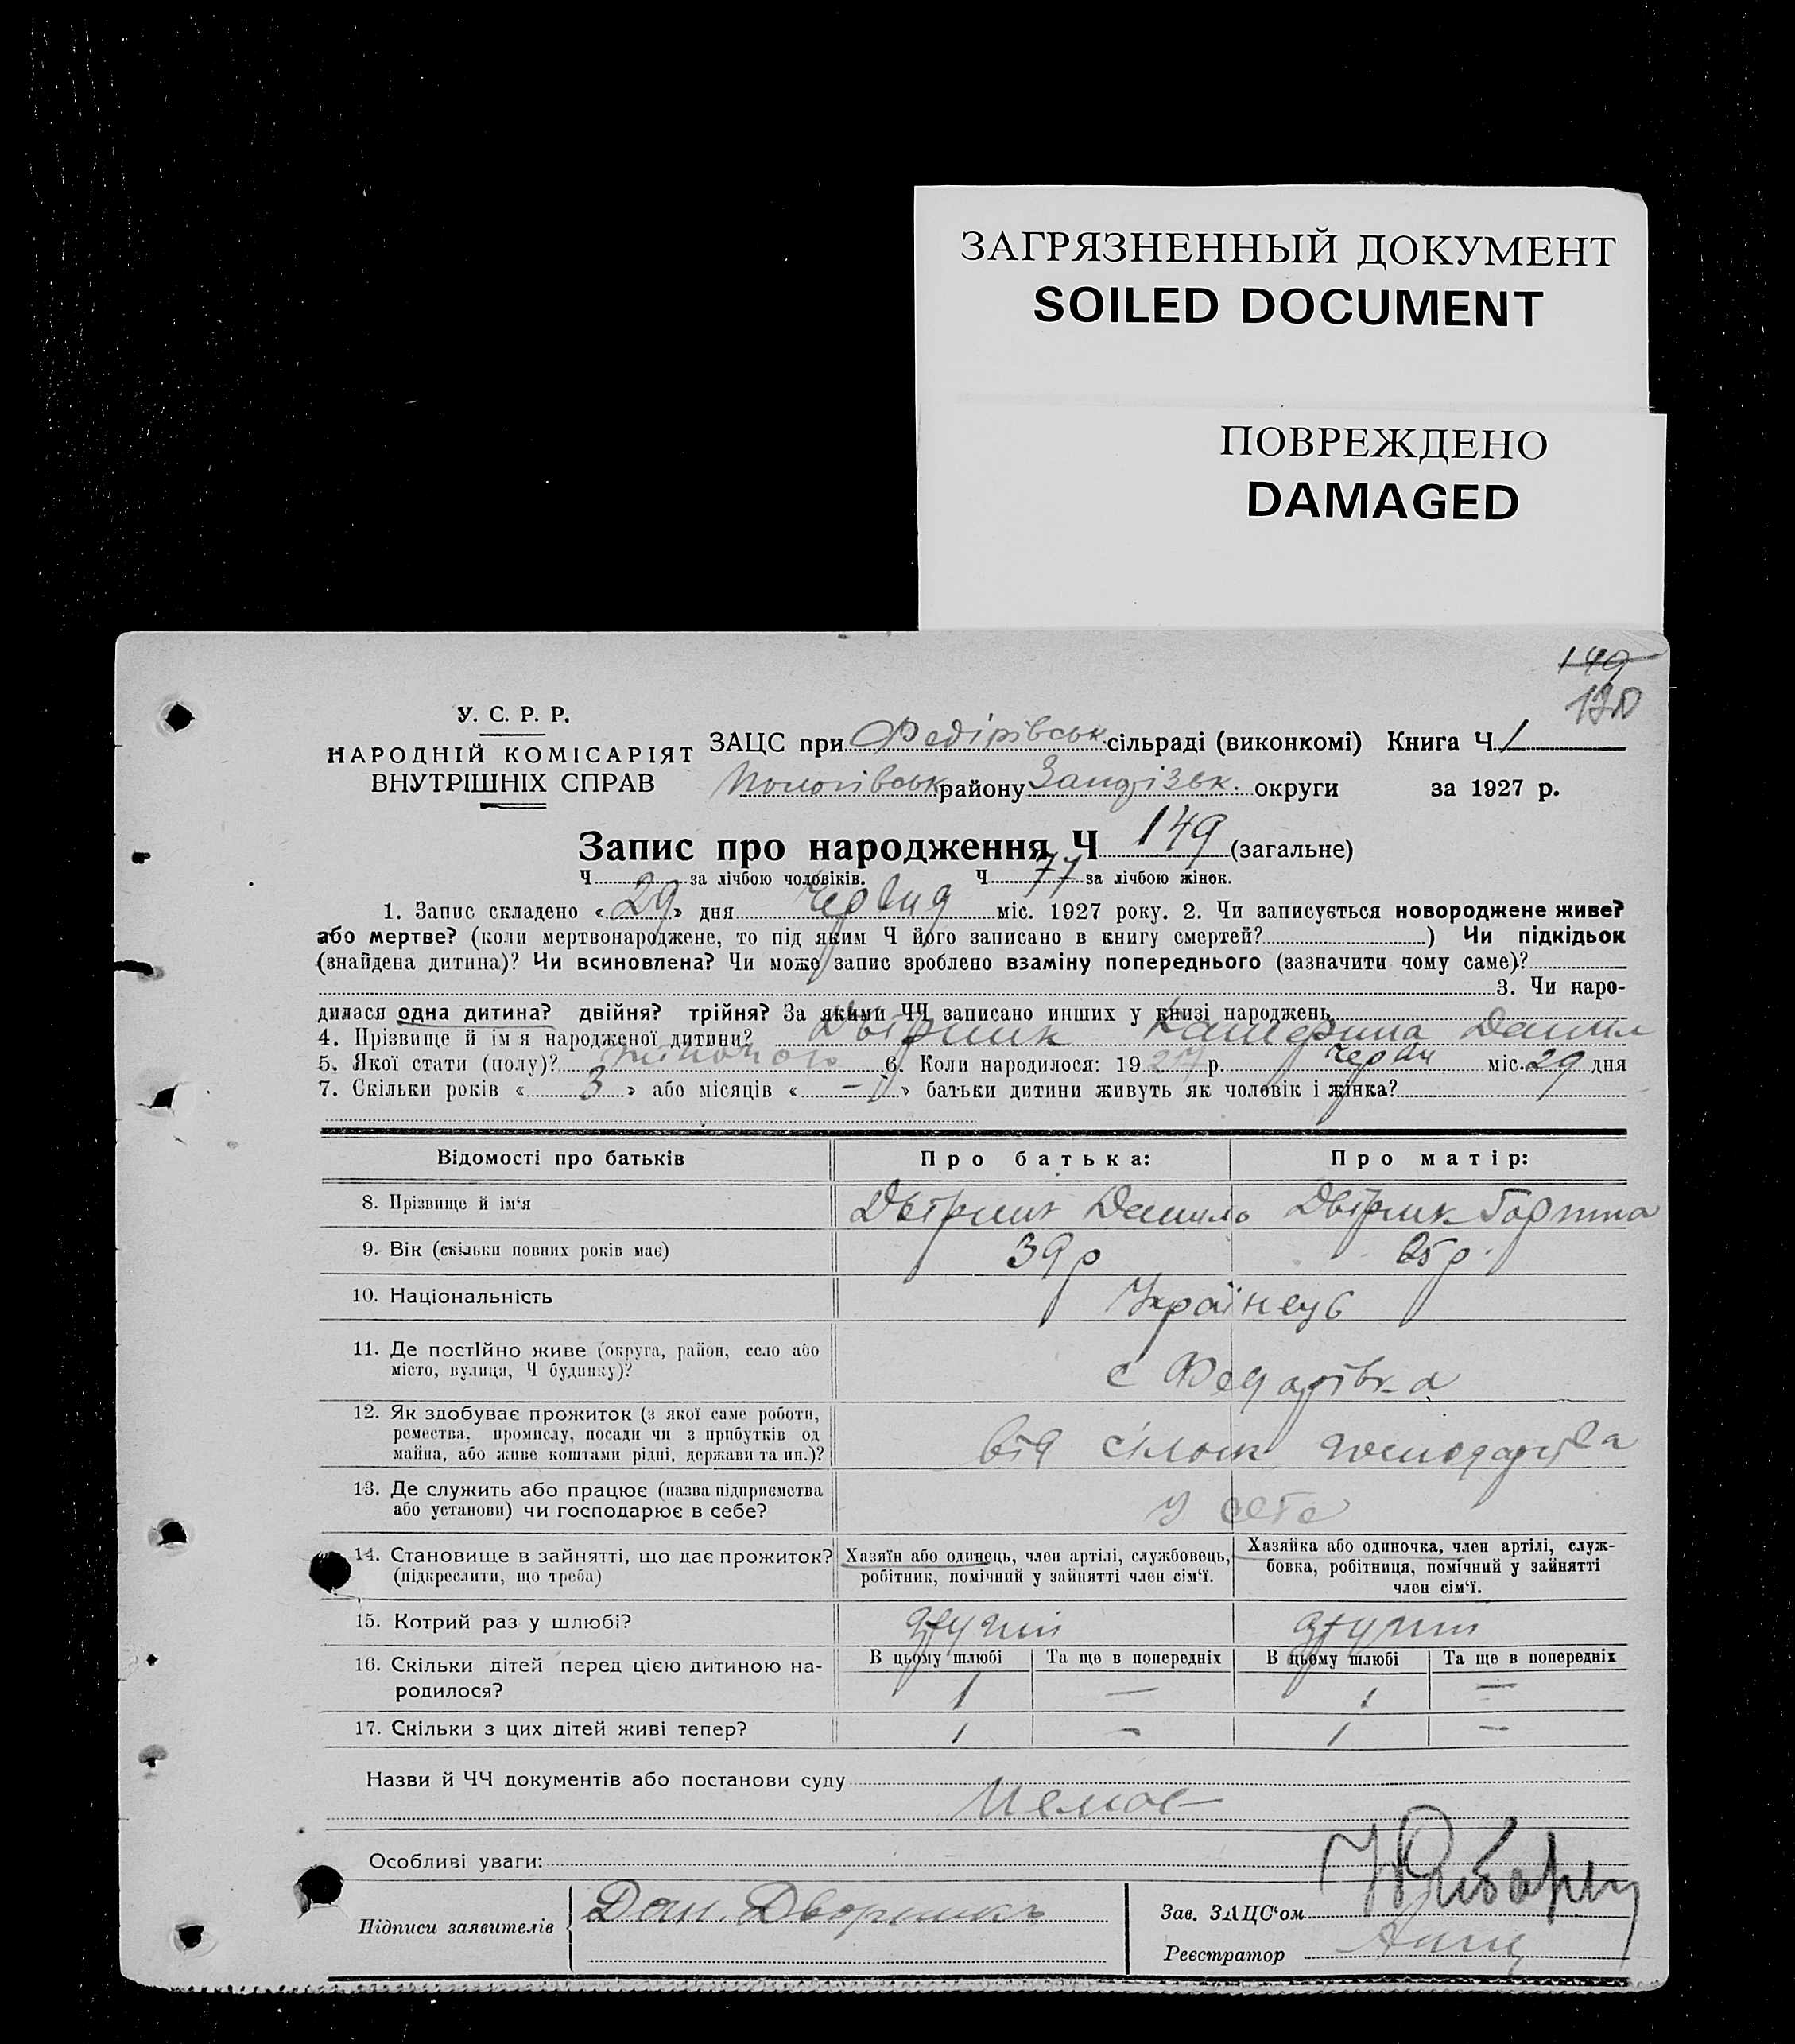 ЗАГРЯЗНЕННЫЙ ДОКУМЕНТ
SOILED DOCUMENT
ПОВРЕЖДЕНО
DAMAGED
149
У. С. Р. Р.
НАРОДНІЙ КОМІСАРІЯТ
ВНУТРІШНІХ СПРАВ
ЗАЦС при Федірівськ. сільраді (виконкомі) Книга Ч. 1
Пологівськ району округи за 1927 р.
Запис про народження Ч 149 (загальне)
Ч. за лічбою чоловіків. Ч. 77 за лічбою жінок.
1. Запис складено «29» дня Червня міс. 1927 року. 2. Чи записується новороджене живе?
або мертве? (коли мертвонароджене, то під яким Ч його записано в книгу смертей?) Чи підкідьок
(знайдена дитина)? Чи всиновлена? Чи може запис зроблено взаміну попереднього (зазначити чому саме)?
3. Чи наро-
дилася одна дитина? двійня? трійня? За якими ЧЧ записано инших у книзі народжень
4. Прізвище й ім'я народженої дитини? Двірник Катерина Данил
5. Якої стати (полу)? жіночого 6. Коли народилося: 1927 р. Червн міс. 29 дня
7. Скільки років «3» або місяців «–» батьки дитини живуть як чоловік і жінка?
Відомості про батьків Про батька: Про матір:
8. Прізвище й ім'я Двірник Данило Двірник
9. Вік (скільки повних років має) 39 р 25 р.
10. Національність Українець
11. Де постІйно живе (округа, район, село або
місто, вулиця, Ч будинку)? с Федорівка
12. Як здобуває прожиток (з якої саме роботи,
ремества, промислу, посади чи з прибутків од
майна, або живе коштами рідні, держави та ин.)? від сільськ господарства
13. Де служить або працює (назва підприємства
або установи) чи господарює в себе? у себе
14. Становище в зайнятті, що дає прожиток?
(підкреслити, що треба)
Хазяїн або одинець, член артілі, службовець,
робітник, помічний у зайнятті член сім'ї.
Хазяйка або одиночка, член артілі, служ-
бовка, робітниця, помічний у зайнятті
член сім'ї.
15. Котрий раз у шлюбі? другий другий
В цьому шлюбі Та ще в попередніх В цьому шлюбі Та ще в попередніх
16. Скільки дітей перед цією дитиною на-
родилося? 1 — 1 —
17. Скільки з цих дітей живі тепер? 1 — 1 —
Назви й ЧЧ документів або постанови суду
Немає
Особливі уваги:
Підписи заявителів Дан. Дворникъ
Зав. ЗАЦС'ом
Реєстратор